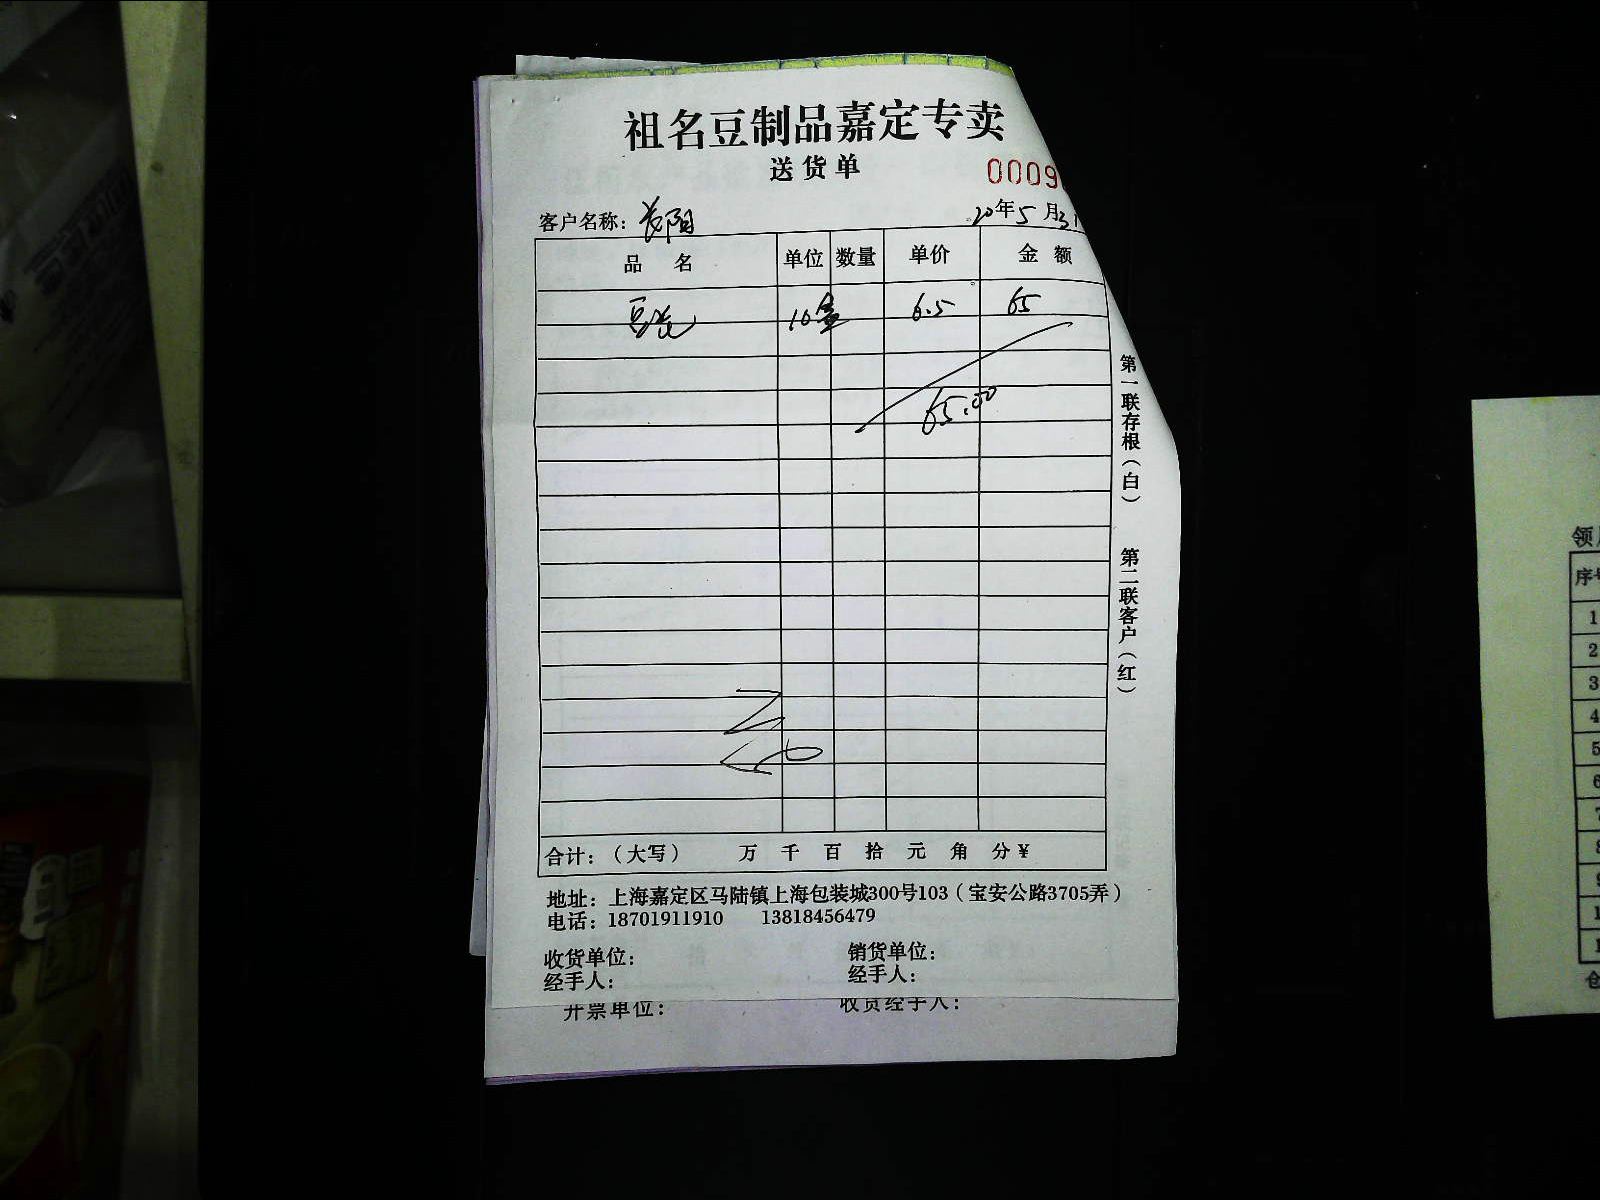 祖名豆制品嘉定专卖
送货单
0009
客户名称：
20年5月31
品名 单位 数量 单价 金额
10盒 6.5 65
65.00
第一联存根（白） 第二联客户（红）
合计：（大写） 万 千 百 拾 元 角 分¥
地址：上海嘉定区马陆镇上海包装城300号103（宝安公路3705弄）
电话：18701911910 13818456479
收货单位： 销货单位：
经手人： 经手人：
开票单位： 收货经手人：
领
序号
1
2
3
4
5
6
7
8